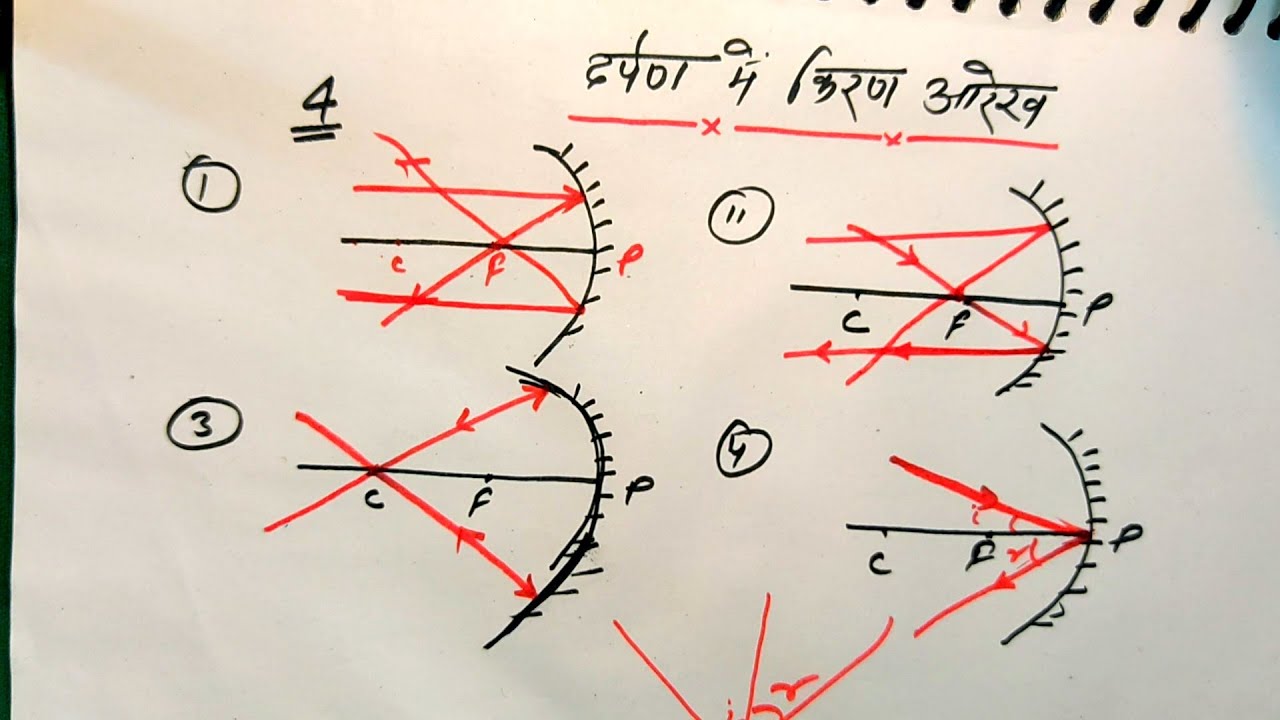 दर्पण में किरण आरेख
4
1
C F P
11
C F P
3
C F P
4
i
C F r P
i r